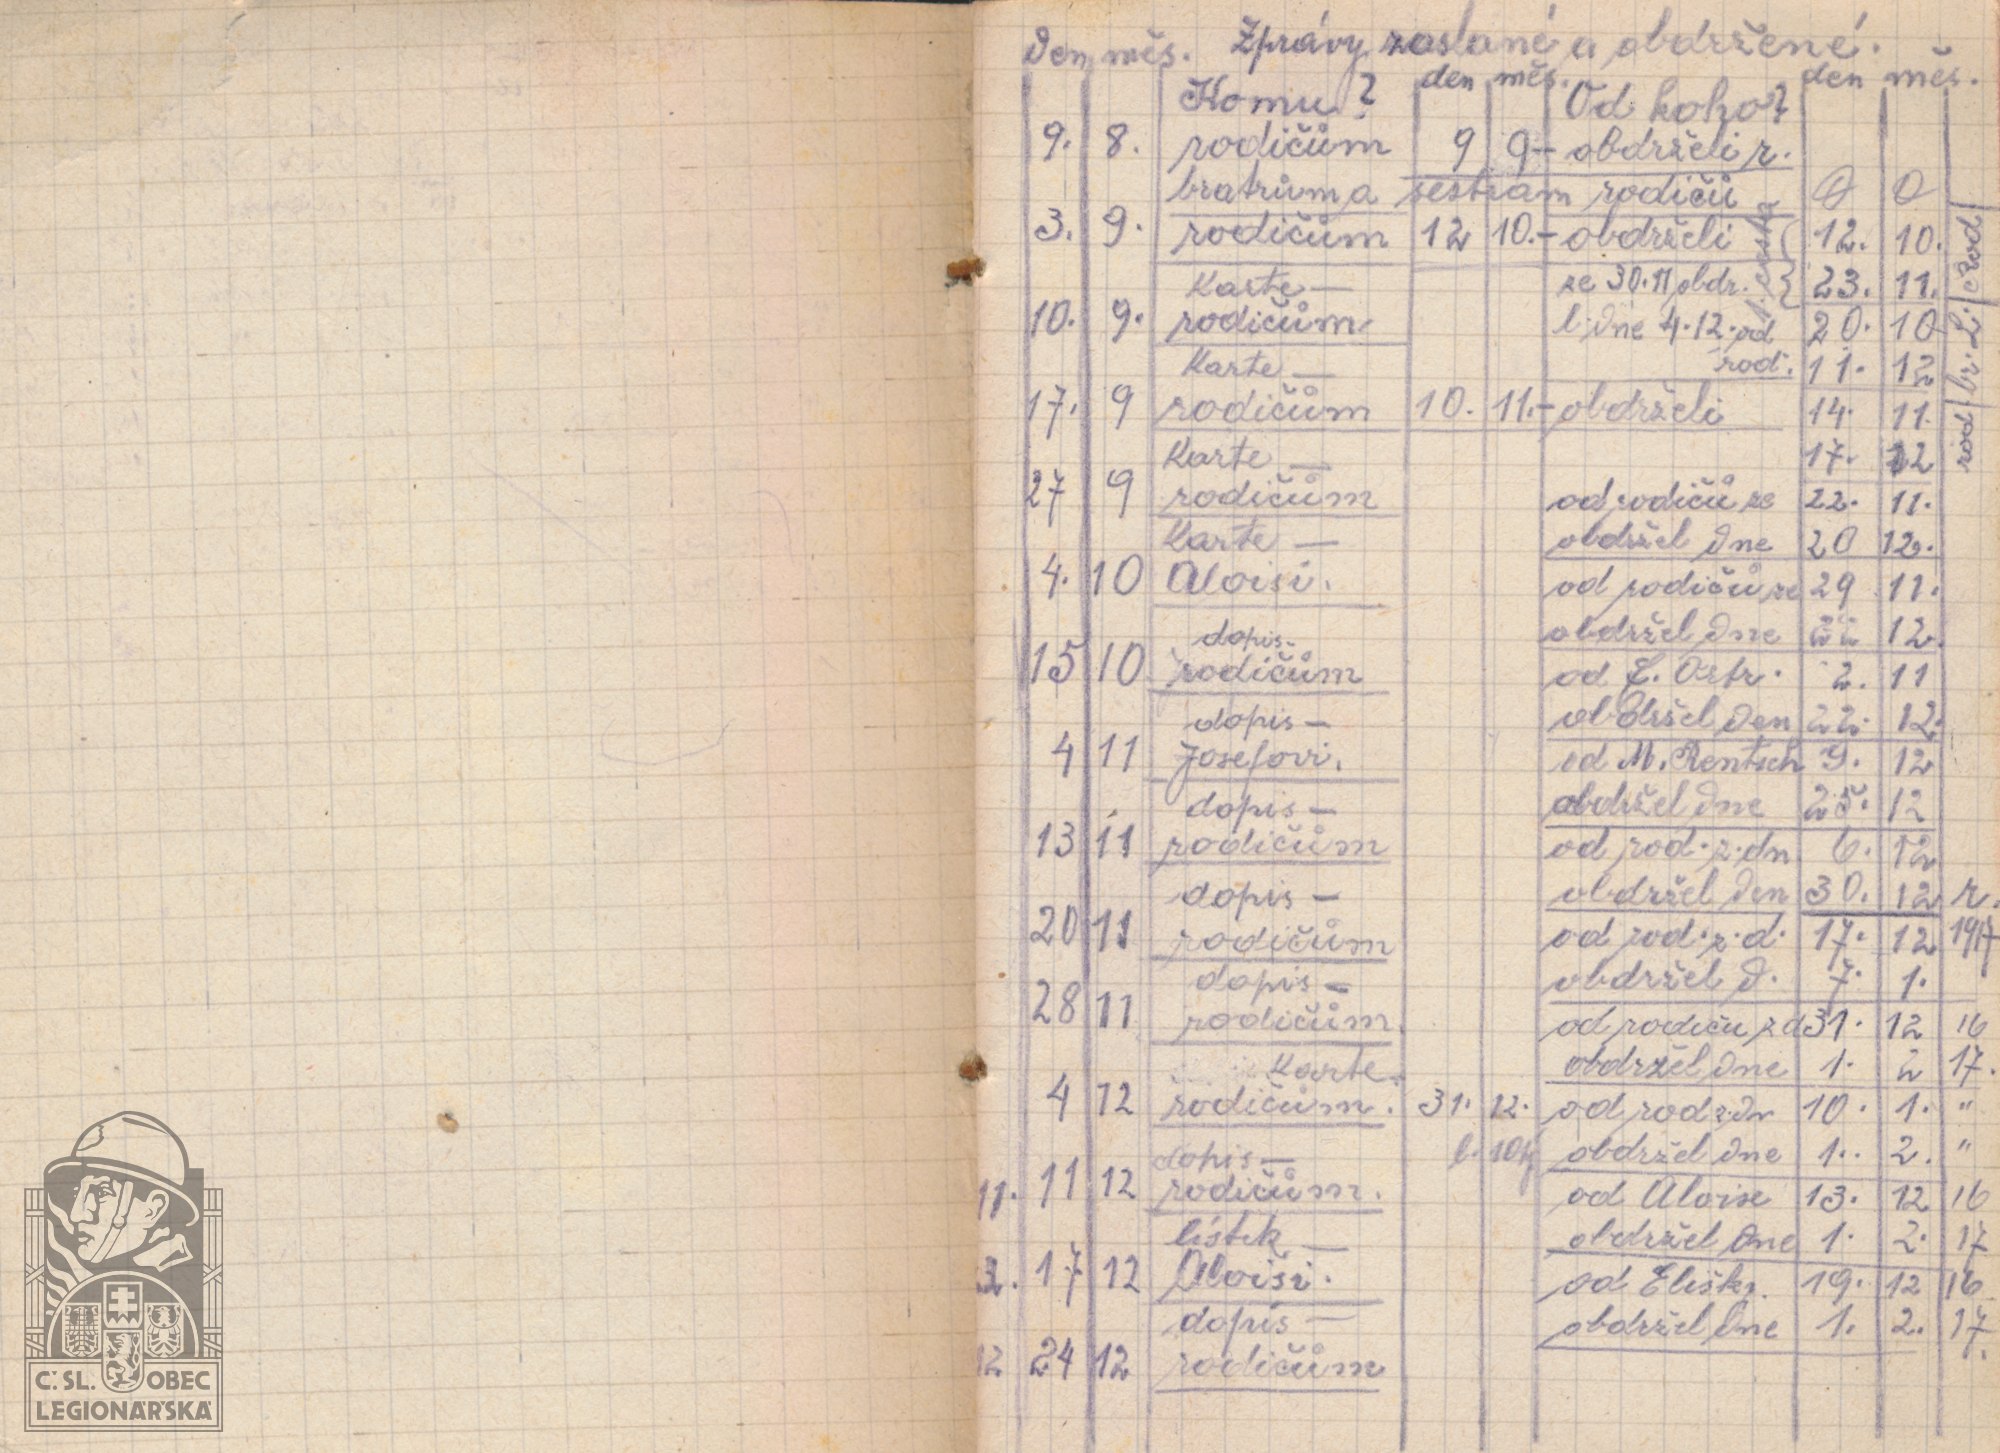 Zprávy zaslané a obdržené.
Den měs. den měs. den měs.
Komu? Od koho?
9. 8. rodičům 9 9 – obdrželi r.
bratrům a sestrám rodičů 0 0
3. 9. rodičům 12 10. – obdrželi 12. 10. rod
Karte – ze 30.11 obdr. 23. 11.
10. 9. rodičům. l. dne 4.12. od 20. 10
Karte – rod. 11. 12
17. 9 rodičům 10. 11. – obdrželi 14. 11. rod
Karte – 17. 12
27 9 rodičům od rodičů ze 22. 11.
Karte – obdržel dne 20 12.
4. 10 Aloisi. od rodičů ze 29 11.
dopis – obdržel dne 22 12.
15 10 rodičům od E. Ostr. 2. 11
dopis – obdržel den 22. 12.
4 11 Josefovi. od M. Rentsch 9. 12
dopis – obdržel dne 25. 12
13 11 rodičům od rod. z. dn 6. 12
dopis – obdržel den 30. 12 r.
20 11 rodičům od rod. z. d. 17. 12 1917
dopis – obdržel d. 7. 1.
28 11 rodičům. od rodičů z d 31. 12 16
Karte. obdržel dne 1. 2 17.
4 12 rodičům. 31. 12. od rod z dn 10. 1. "
dopis – obdržel dne 1. 2. "
11. 11 12 rodičům. od Aloise 13. 12 16
lístek – obdržel dne 1. 2. 17
17 12 Aloisi. od Elišky. 19. 12 16
dopis – obdržel dne 1. 2. 17.
12 24 12 rodičům
Č. SL. OBEC
LEGIONÁŘSKÁ